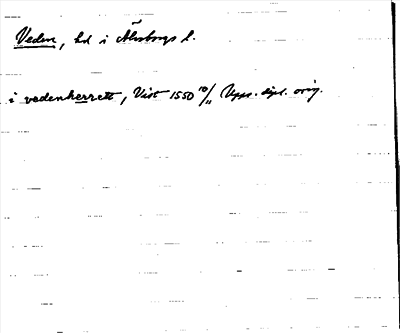 Veden, hd i Älvsborgs l.
i vedenherrett, Vist 1550 10/11 Upps. dipl. orig.